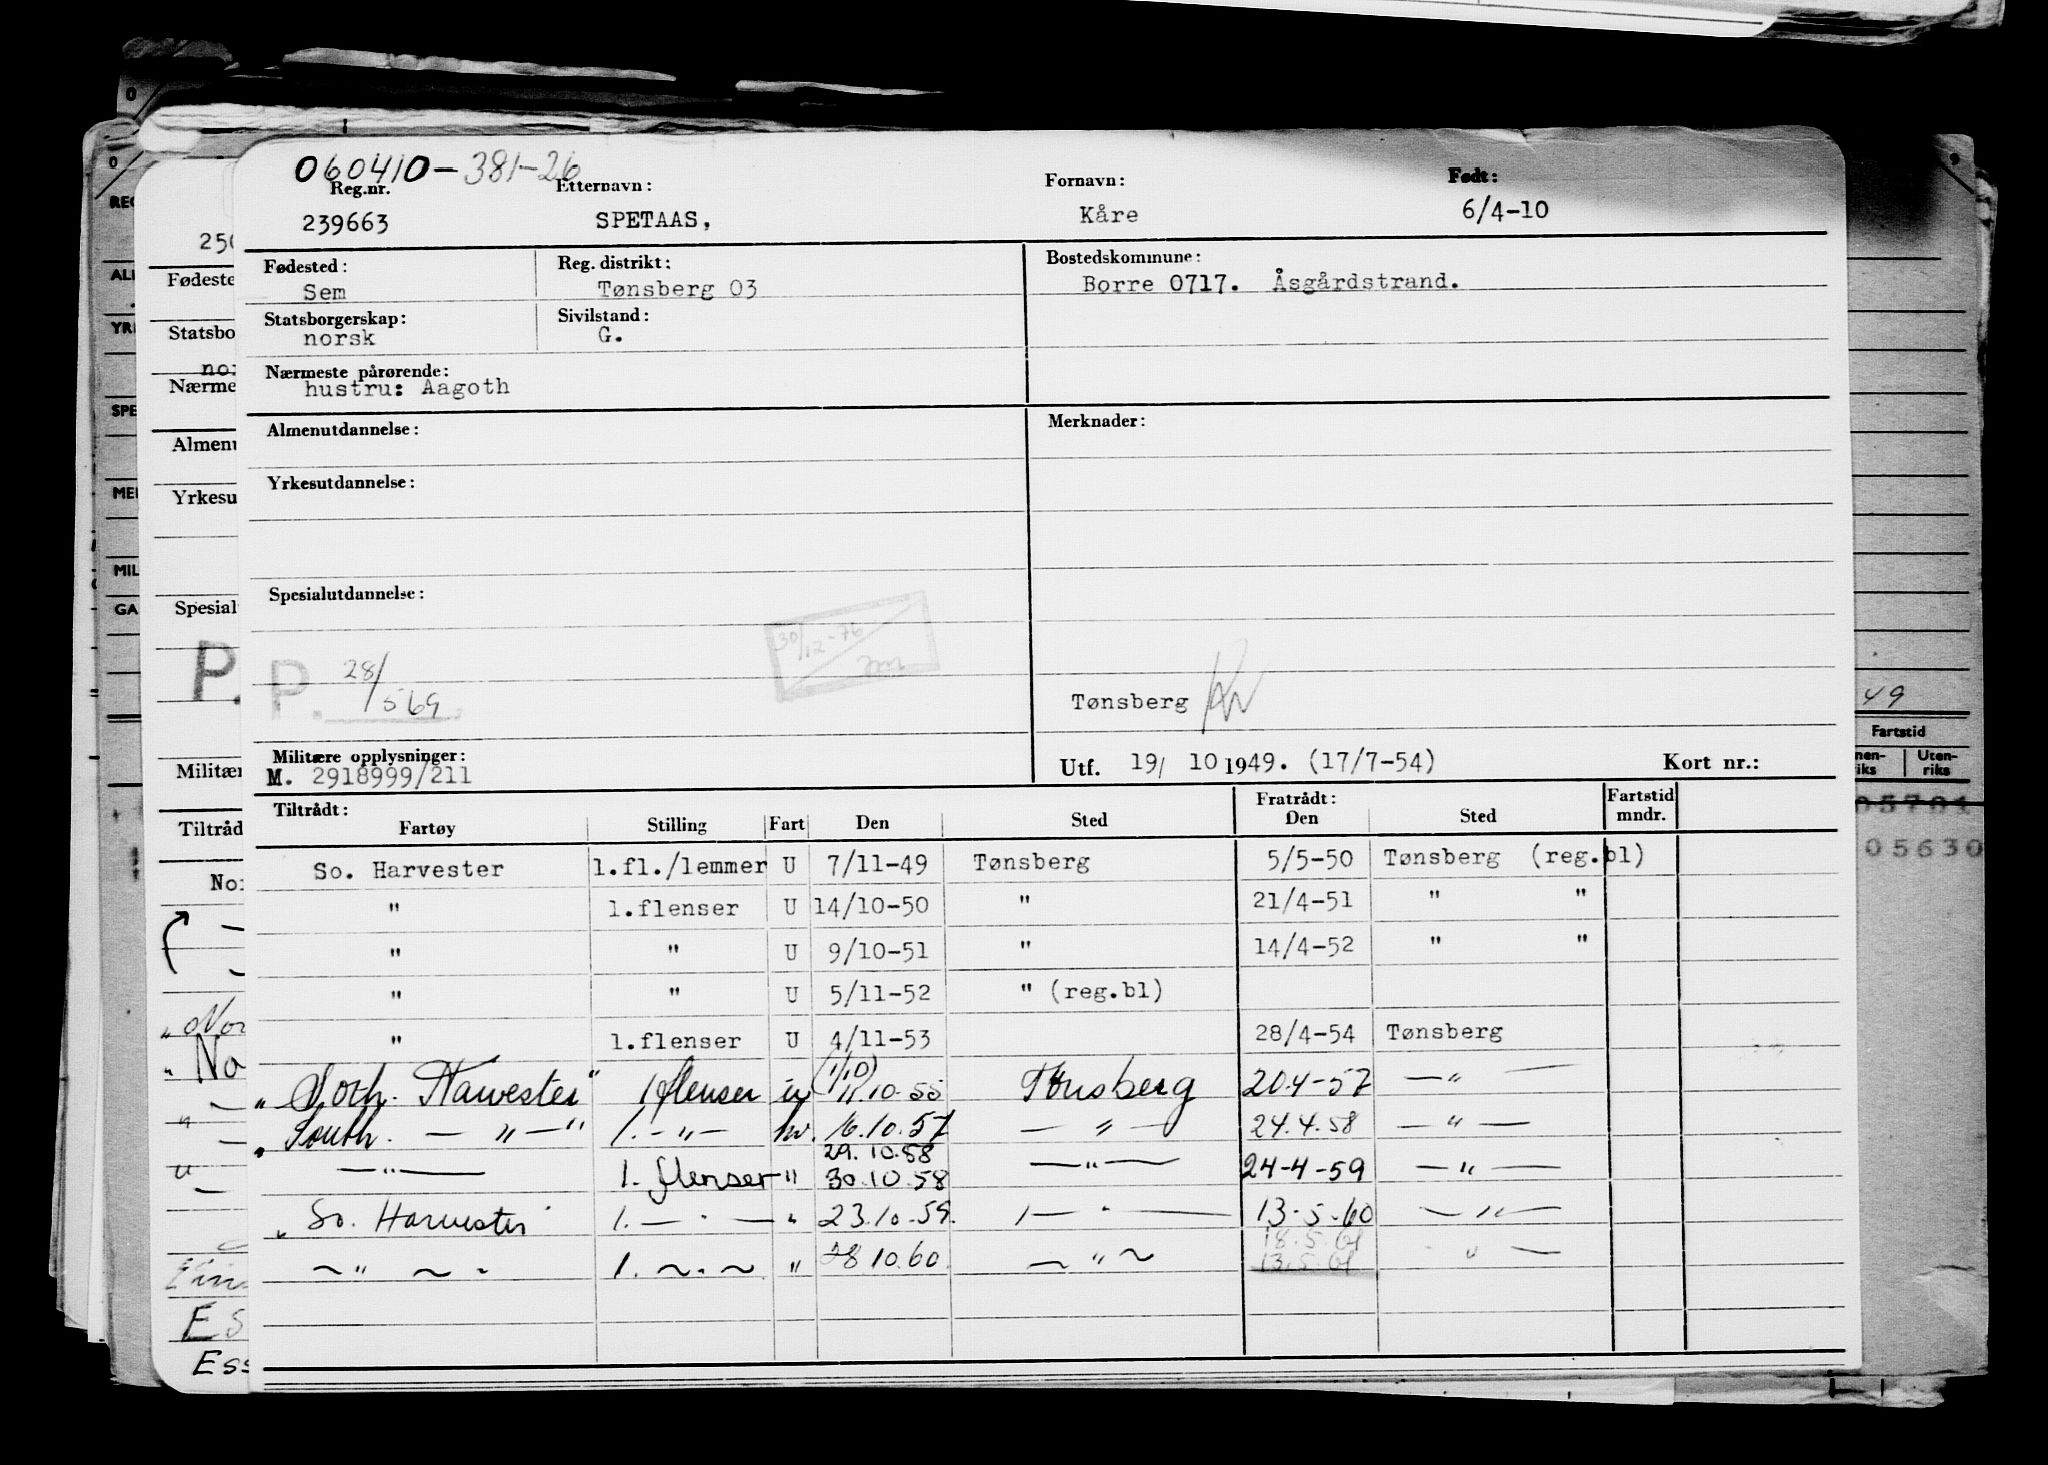 060410-381-26
Reg.nr. Etternavn: Fornavn: Født:
239663 SPETAAS, Kåre 6/4-10
Fødested: Reg. distrikt: Bostedskommune:
Sem Tønsberg 03 Borre 0717. Åsgårdstrand.
Statsborgerskap: Sivilstand:
norsk G.
Nærmeste pårørende:
hustru: Aagoth
Almenutdannelse: Merknader:
Yrkesutdannelse:
Spesialutdannelse:
30/12-76
P. 28/569
Tønsberg
Militære opplysninger:
M. 2918999/211
Utf. 19/ 10 1949. (17/7-54) Kort nr.:
Tiltrådt: Fratrådt: Fartstid
Fartøy Stilling Fart Den Sted Den Sted mndr.
So. Harvester 1.fl./lemmer U 7/11-49 Tønsberg 5/5-50 Tønsberg (reg.bl)
" 1.flenser U 14/10-50 " 21/4-51 " "
" " U 9/10-51 " 14/4-52 " "
" " U 5/11-52 " (reg.bl)
" 1.flenser U 4/11-53 28/4-54 Tønsberg
(1/10)
Harvester" 1 flenser 11.10.55 Tønsberg 20.4-57 —"—
"South. — " —" 1. — " — hv. 16.10.57 — " — 24.4.58 — " —
29.10.58
— " — 1. flenser " 30.10.58 — " — 24-4-59 — " —
"So. Harvester" 1. — " — " 23.10.59. — " — 13-5-60 — " —
18.5.61
~ " ~ " 1. ~ " ~ " 28.10.60 ~ " ~ 13.5.61 " —
250
Fødeste
Statsbo
nor
Nærme
Almenu
Yrkesu
Spesial
P.
Militær
Tiltråd
Nor
"Nor
"No
Es
Ess
REG
YRK
SPE
MIL
GA
49
Fartstid
Uten-
riks
05701
05630